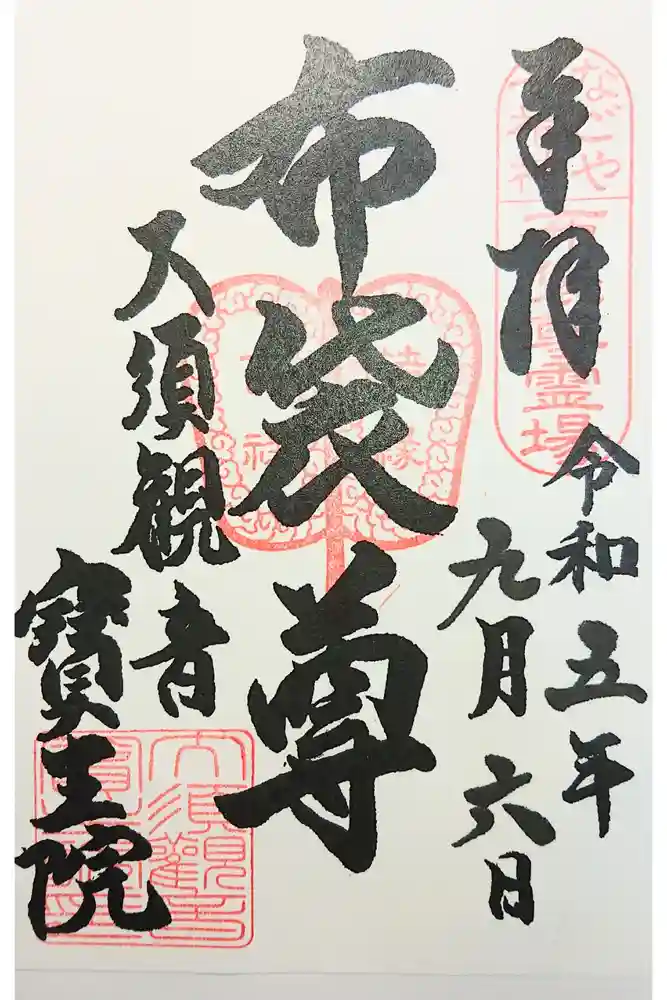 奉拝
令和五年
九月六日
布袋尊
大須観音
寶生院
なごや
霊場
大須観音